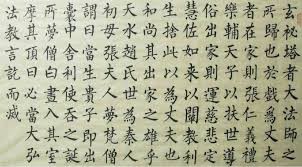 玄秘塔者大法師之
所歸也於戲為丈夫
者在家則張仁義禮
樂輔天子以扶世導
俗出家則運慈悲定
慧佐如來以闡教利
生捨此以為丈夫也
和尚其出家之雄乎
天水趙氏世為秦人
初母張夫人夢梵僧
謂曰當生貴子即出
囊中舍利使吞之誕
所夢僧白晝入其室
摩其頂曰必當大弘
法教言訖而滅